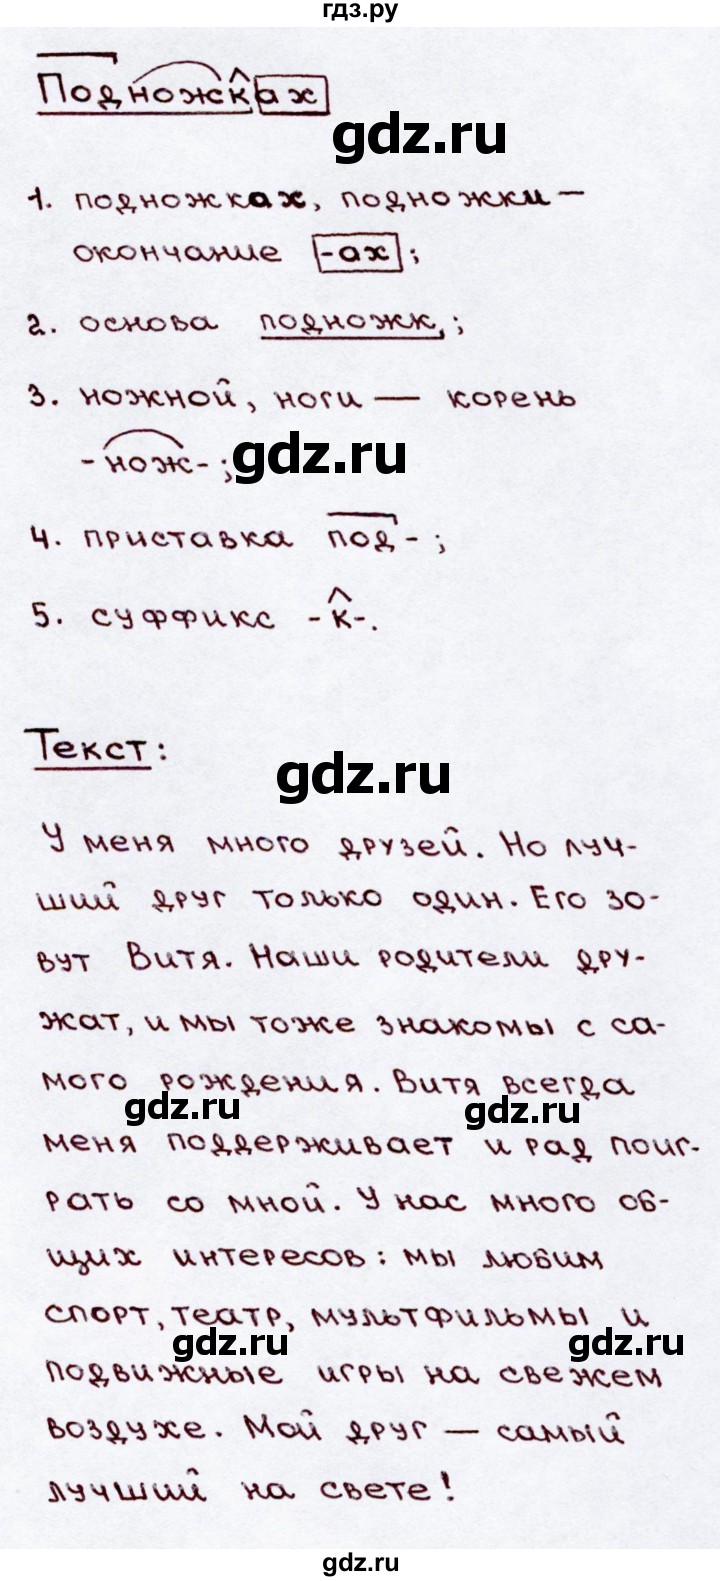 гдз.ру
Подножках
gdz.ru
1. подножках, подножки —
окончание -ах ;
2. основа подножк, ;
3. ножной, ноги — корень
-нож- ;
gdz.ru
4. приставка под- ;
5. суффикс -к-.
Текст:
gdz.ru
У меня много друзей. Но луч-
ший друг только один. Его зо-
вут Витя. Наши родители дру-
жат, и мы тоже знакомы с са-
мого рождения. Витя всегда
gdz.ru
gdz.ru
меня поддерживает и рад поиг-
рать со мной. У нас много об-
щих интересов: мы любим
спорт, театр, мультфильмы и
gdz.ru
gdz.ru
подвижные игры на свежем
воздухе. Мой друг — самый
лучший на свете!
gdz.ru